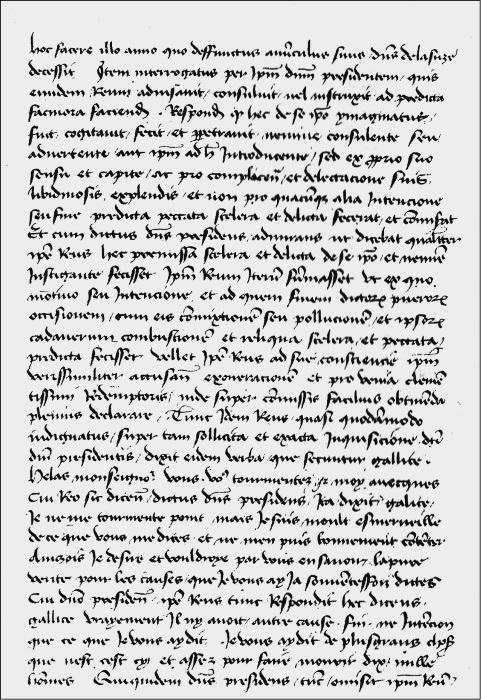 hoc facere illo anno quo deffunctus avũculus suus dñs de la suze
decessit Item interrogatus per ipm̃ dñm presidentem quis
eundem Reum advisavit consuluit vel instruxit ad predicta
facinora faciend̃ . Respondit qđ hec de se ipõ ymaginatus
fuit cogitavit fecit et ꝑpetravit nemine consulente seu
advertente aut ipm̃ ad h̃ introducente sed ex ꝓprio suo
sensu et capite ac pro complacen̄ et delectacione suis
libidinosis explendis et non pro quacũqꝫ alia intencione
seu fine predicta peccata scelera et delicta fecerat et cõmiserat
Et cum dictus dñs presidens admirans ut dicebat qualiter
ipẽ Reus hec premissa scelera et delicta de se ipõ et nemine
instigante fecisset ipm̃ Reum iterũ sum̃asset ut ex quo
motivo seu intencione et ad quem finem dictoꝝ pueroꝝ
occisionem cum eis cõmixtionẽ seu pollucionẽ et ipsoꝝ
cadaverum combustionẽ et reliqua scelera et peccata
predicta fecisset vellet ipẽ Reus ad sue consciencie ipm̃
verissimiliter accusan̄ exoneracionẽ et pro venia clemẽ
tissimi redemptoris inde super cõmissis facilius obtinẽda
plenius declarare Tunc idem Reus quasi quodãmodo
indignatus super tam sollicita et exacta inquisicione dc̃i
dñi presidentis dixit eidem verba que secuntur gallice .
Helas monseignoʳ vous voˢ tourmentez et moy avecques
Cui Reo sic dicen̄ dictus dñs presidens ita dixit galice
Je ne me tourmente point mais je suis moult esmerveille
de ce que vous me dites et ne men puis bonnement cõtẽter
Ainzois je desire et vouldroye par vous en savoir la pure
verite pour les causes que je vous ay ja souventesfois dictes
Cui dño presiden̄ ipẽ Reus tunc respondit hec dicens
gallice vrayement il ny avoit autre cause fin ne intencion
que ce que je vous ay dit . Je vous ay dit de plus grans choses
que nest cest cy et assez pour faire mourir dix mille
hõmes Quiquidem dñs presidens tunc omisit ipm̃ Reũ